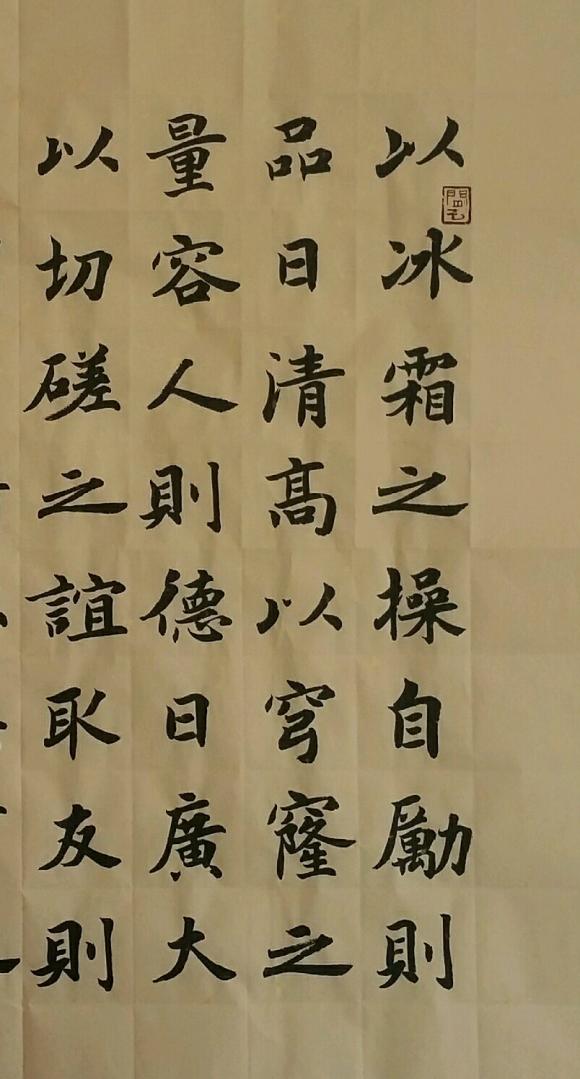 以冰霜之操自勵則
品日清高以穹窿之
量容人則德日廣大
以切磋之誼取友則